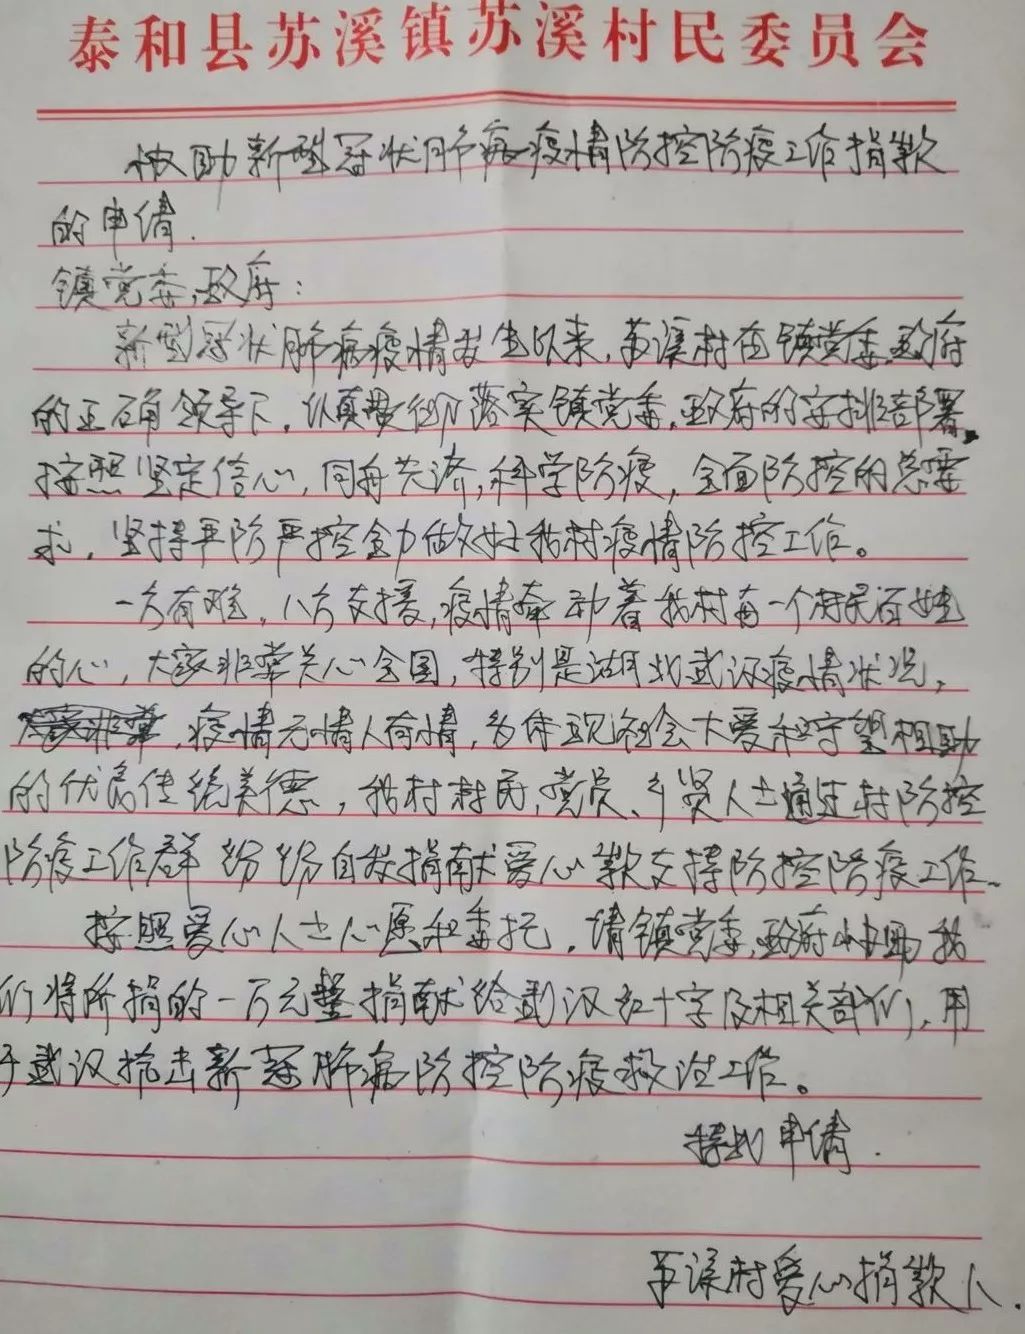 泰和县苏溪镇苏溪村民委员会
协助新型冠状肺病疫情防控防疫工作捐款
的申请.
镇党委,政府:
新型冠状肺病疫情发生以来,苏溪村在镇党委、政府
的正确领导下,认真贯彻落实镇党委,政府的安排部署,
按照坚定信心,同舟共济,科学防疫,全面防控的总要
求,坚持严防严控全力做好我村疫情防控工作。
一方有难,八方支援,疫情牵动着我村每一个村民百姓
的心,大家非常关心全国,特别是湖北武汉疫情状况,
疫情无情人有情,为体现社会大爱和守望相助
的优良传统美德,我村村民,党员、乡贤人士通过村防控
防疫工作群纷纷自发捐献爱心款支持防控防疫工作.
按照爱心人士心愿和委托,请镇党委,政府协助我
们将所捐的一万元整捐献给武汉红十字及相关部门,用
于武汉抗击新冠肺病防控防疫救治工作。
特此申请.
苏溪村爱心捐款人.